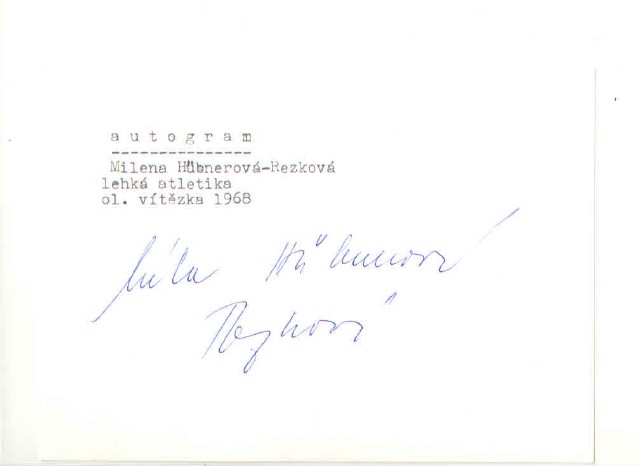 autogram
--------------
Milena Hübnerová-Rezková
lehká atletika
ol. vítězka 1968
Míla Hübnerová
Rezková